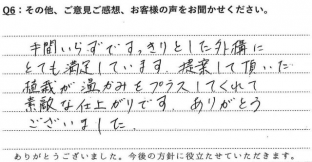 Q6：その他、ご意見ご感想、お客様の声をお聞かせください。
手間いらずですっきりとした外構に
とても満足しています。提案して頂いた
植栽が温かみをプラスしてくれて
素敵な仕上がりです。ありがとう
ございました
ありがとうございました。今後の方針に役立たせていただきます。